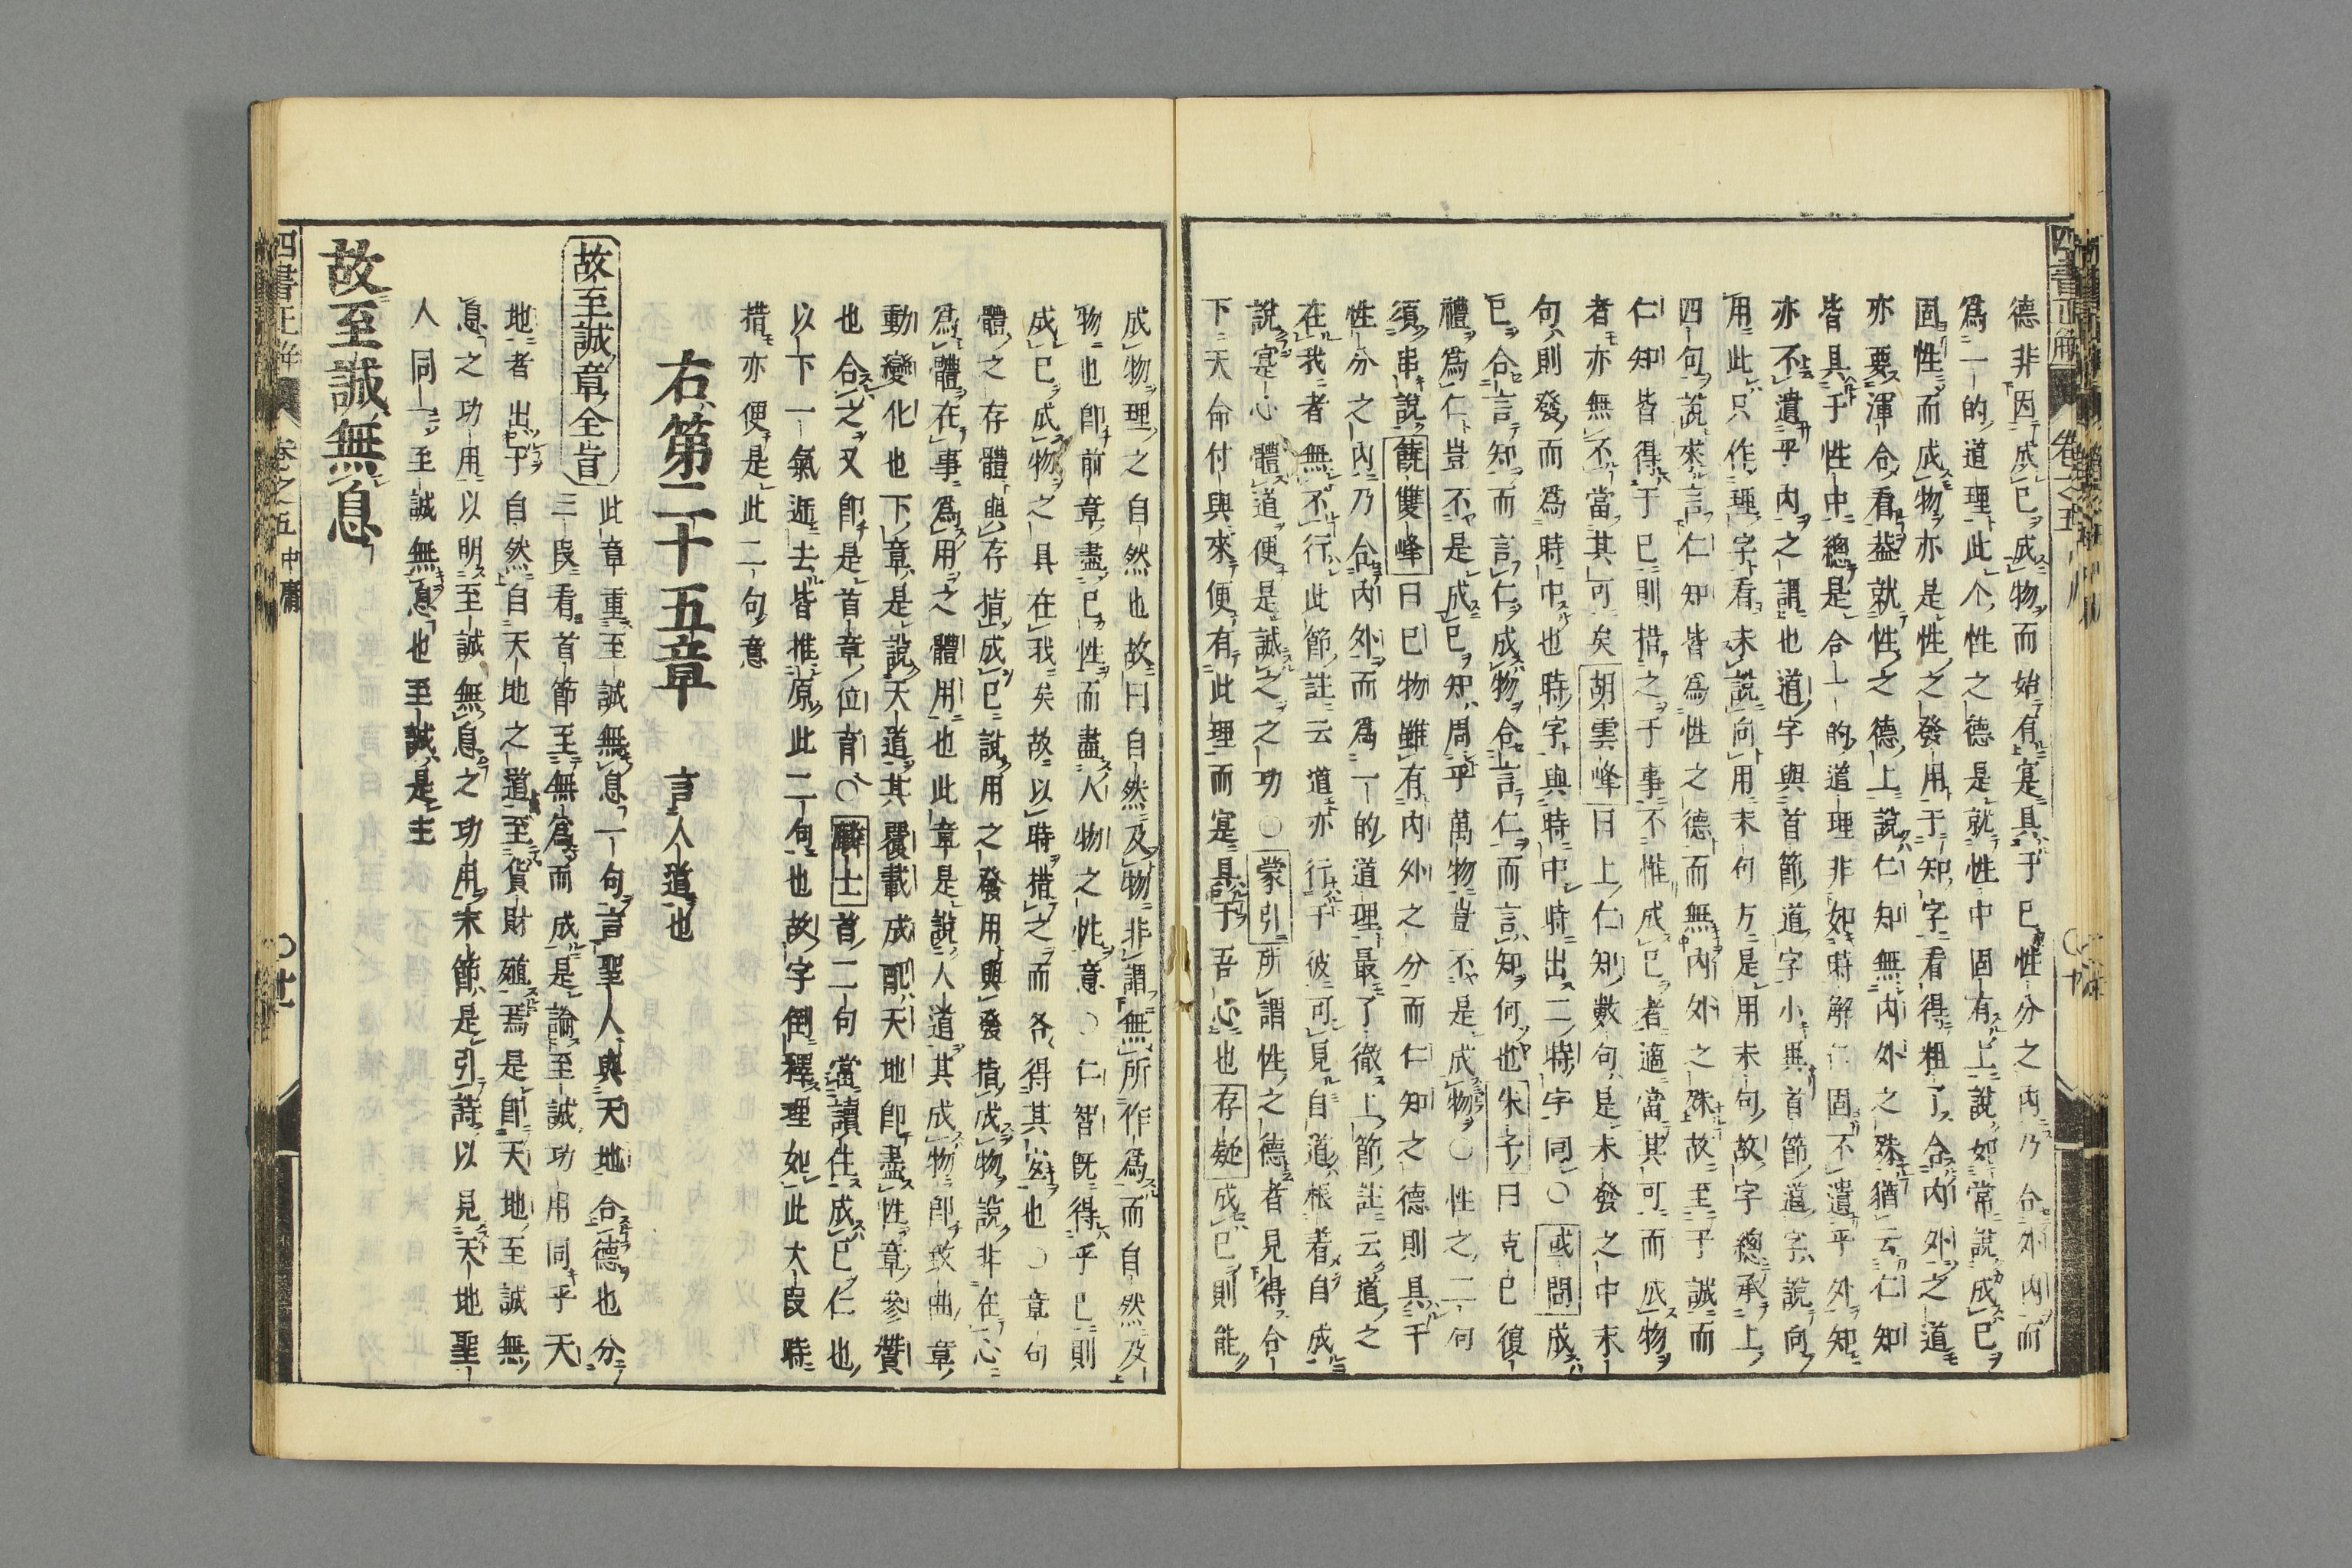 德非因成已成物而始有寔具于已性分之內乃合外內而
爲一的道理此个性之德是就性中固有上說如常說成已
固性而成物亦是性之發用于知字看得粗了合內外之道
亦要渾合看葢就性之德上說仁知無內外之殊猶云仁知
皆具于性中總是合一的道理非如時解仁固不遺乎外知
亦不遺乎內之謂也道字與首節道字小異首節道字說向
用此只作理字看未說向用末句方是用末句故字總承上
四句說來言仁知皆爲性之德而無內外之殊故至于誠而
仁知皆得于已則措之于事不惟成已者適當其可而成物
者亦無不當其可矣胡雲峰曰上仁知數句是未發之中末
句則發而爲時中也時字與時中時出二時字同○或問成
已合言知而言仁成物合言仁而言知何也朱子曰克已復
禮爲仁豈不是成已知周乎萬物豈不是成物○性之二句
須串說饒雙峰曰已物雖有內外之分而仁知之德則具于
性分之內乃合內外而爲一的道理最了徹上節註云道之
在我者無不行此節註云道亦行于彼可見自道根者自成
說寔心體道便是誠之之功○蒙引所謂性之德者見得合
下天命付與來便有此理而寔具于吾心也存疑成已則能
成物理之自然也故曰自然及物非謂無所作爲而自然及
物也卽前章盡已性而盡人物之性意○仁智旣得乎已則
成已成物之具在我矣故以時措之而各得其宜也○章句
體之存體與存措成已說用之發用與發措成物說非在心
爲體在事爲用之體用也此章是說人道其成物卽致曲章
動變化也下章是說天道其覆載成配天地卽盡性章參贊
也合之又卽是首章位育○麟士首二句當讀住成已仁也
以下一氣遞去皆推原此二句也故字倒釋理如此大叚時
措亦便是此二句意
右第二十五章 言人道也
故至誠章全旨
此章重至誠無息一句言聖人與天地合德也分
三叚看首節至無爲而成是論至誠功用同乎天
地者出于自然自天地之道至貨財殖焉是卽天地至誠無
息之功用以明至誠無息之功用末節是引詩以見天地聖
人同一至誠無息也至誠是主
故至誠無息
四書正解 卷之五 中庸 ○廿